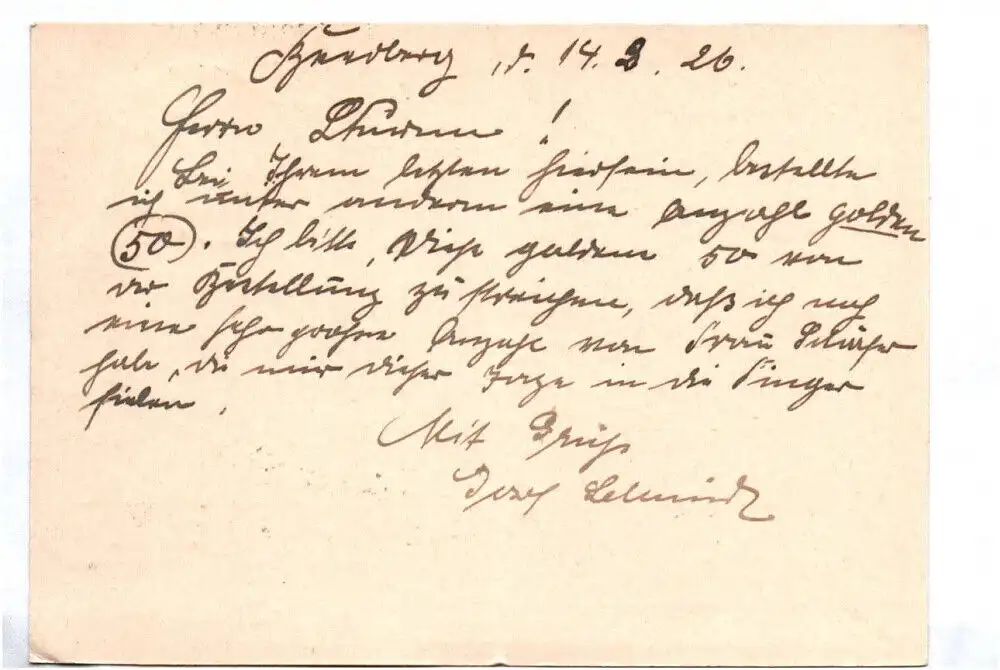 d. 14. 3. 26.
Herrn Sturm !
Bei Ihrem letzten Hiersein, bestellte
ich unter anderem eine Anzahl golden
50. Ich bitte, diese goldenen 50 von
der Bestellung zu streichen, daß ich noch
eine sehr große Anzahl von Frau Schäfer
habe, die mir dieser Tage in die Finger
fielen.
Mit Gruß
Josef Schmidt